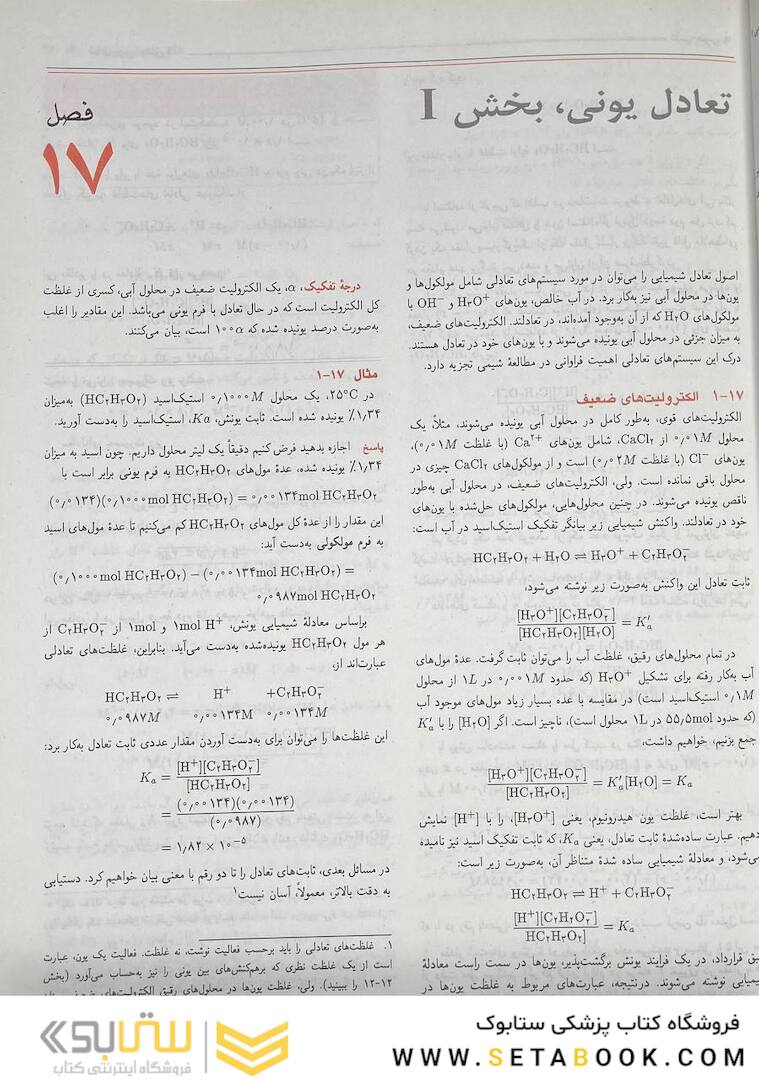 تعادل یونی، بخش I
فصل
۱۷
اصول تعادل شیمیایی را می‌توان در مورد سیستم‌های تعادلی شامل مولکول‌ها و
یون‌ها در محلول آبی نیز به‌کار برد. در آب خالص، یون‌های H۳O+ و OH− با
مولکول‌های H۲O که از آن به‌وجود آمده‌اند، در تعادلند. الکترولیت‌های ضعیف،
به میزان جزئی در محلول آبی یونیده می‌شوند و با یون‌های خود در تعادل هستند.
درک این سیستم‌های تعادلی اهمیت فراوانی در مطالعهٔ شیمی تجزیه دارد.
۱۷-۱ الکترولیت‌های ضعیف
الکترولیت‌های قوی، به‌طور کامل در محلول آبی یونیده می‌شوند، مثلاً، یک
محلول ۰٫۰۱M از CaCl۲، شامل یون‌های Ca۲+ (با غلظت ۰٫۰۱M)،
یون‌های Cl− (با غلظت ۰٫۰۲M) است و از مولکول‌های CaCl۲ چیزی در
محلول باقی نمانده است. ولی، الکترولیت‌های ضعیف، در محلول آبی به‌طور
ناقص یونیده می‌شوند. در چنین محلول‌هایی، مولکول‌های حل‌شده با یون‌های
خود در تعادلند. واکنش شیمیایی زیر بیانگر تفکیک استیک‌اسید در آب است:
HC۲H۳O۲ + H۲O ⇌ H۳O+ + C۲H۳O۲−
ثابت تعادل این واکنش به‌صورت زیر نوشته می‌شود،
[H۳O+][C۲H۳O۲−] / [HC۲H۳O۲][H۲O] = K′a
در تمام محلول‌های رقیق، غلظت آب را می‌توان ثابت گرفت. عدهٔ مول‌های
آب به‌کار رفته برای تشکیل H۳O+ (که حدود ۰٫۰۰۱M در ۱L از محلول
۰٫۱M استیک‌اسید است) در مقایسه با عده بسیار زیاد مول‌های موجود آب
(که حدود ۵۵٫۵mol در ۱L محلول است)، ناچیز است. اگر [H۲O] را با K′a
جمع بزنیم، خواهیم داشت،
[H۳O+][C۲H۳O۲−] / [HC۲H۳O۲] = K′a[H۲O] = Ka
بهتر است، غلظت یون هیدرونیوم، یعنی [H۳O+]، را با [H+] نمایش
دهیم. عبارت ساده‌شدهٔ ثابت تعادل، یعنی Ka، که ثابت تفکیک اسید نیز نامیده
می‌شود، و معادلهٔ شیمیایی ساده شدهٔ متناظر آن، به‌صورت زیر است:
HC۲H۳O۲ ⇌ H+ + C۲H۳O۲−
[H+][C۲H۳O۲−] / HC۲H۳O۲] = Ka
قرارداد، در یک فرایند یونش برگشت‌پذیر، یون‌ها در سمت راست معادلهٔ
شیمیایی نوشته می‌شوند. درنتیجه، عبارت‌های مربوط به غلظت یون‌ها در
درجهٔ تفکیک، α، یک الکترولیت ضعیف در محلول آبی، کسری از غلظت
کل الکترولیت است که در حال تعادل با فرم یونی می‌باشد. این مقادیر را اغلب
به‌صورت درصد یونیده شده که ۱۰۰α است، بیان می‌کنند.
مثال ۱۷-۱
در ۲۵°C، یک محلول ۰٫۱۰۰۰M استیک‌اسید (HC۲H۳O۲) به‌میزان
۱٫۳۴٪ یونیده شده است. ثابت یونش، Ka، استیک‌اسید را به‌دست آورید.
پاسخ اجازه بدهید فرض کنیم دقیقاً یک لیتر محلول داریم. چون اسید به میزان
۱٫۳۴٪ یونیده شده، عدهٔ مول‌های HC۲H۳O۲ به فرم یونی برابر است با
(۰٫۰۱۳۴)(۰٫۱۰۰۰mol HC۲H۳O۲) = ۰٫۰۰۱۳۴mol HC۲H۳O۲
این مقدار را از عدهٔ کل مول‌های HC۲H۳O۲ کم می‌کنیم تا عدهٔ مول‌های اسید
به فرم مولکولی به‌دست آید:
(۰٫۱۰۰۰mol HC۲H۳O۲) − (۰٫۰۰۱۳۴mol HC۲H۳O۲) =
۰٫۰۹۸۷mol HC۲H۳O۲
براساس معادلهٔ شیمیایی یونش، ۱mol H+ و ۱mol از C۲H۳O۲− از
هر مول HC۲H۳O۲ یونیده‌شده به‌دست می‌آید. بنابراین، غلظت‌های تعادلی
عبارت‌اند از،
HC۲H۳O۲ ⇌ H+ +C۲H۳O۲−
۰٫۰۹۸۷M ۰٫۰۰۱۳۴M ۰٫۰۰۱۳۴M
این غلظت‌ها را می‌توان برای به‌دست آوردن مقدار عددی ثابت تعادل به‌کار برد:
Ka = [H+][C۲H۳O۲−] / [HC۲H۳O۲]
= (۰٫۰۰۱۳۴)(۰٫۰۰۱۳۴) / (۰٫۰۹۸۷)
= ۱٫۸۲ × ۱۰−۵
در مسائل بعدی، ثابت‌های تعادل را تا دو رقم با معنی بیان خواهیم کرد. دستیابی
به دقت بالاتر، معمولاً، آسان نیست۱
۱. غلظت‌های تعادلی را باید برحسب فعالیت نوشت، نه غلظت. فعالیت یک یون، عبارت
است از یک غلظت نظری که برهم‌کنش‌های بین یونی را نیز به‌حساب می‌آورد (بخش
۱۲-۱۲ را ببینید). ولی، غلظت یون‌ها در محلول‌های رقیق الکترولیت‌های
فروشگاه کتاب پزشکی ستابوک
WWW.SETABOOK.COM
ستابوک
فروشگاه اینترنتی کتاب